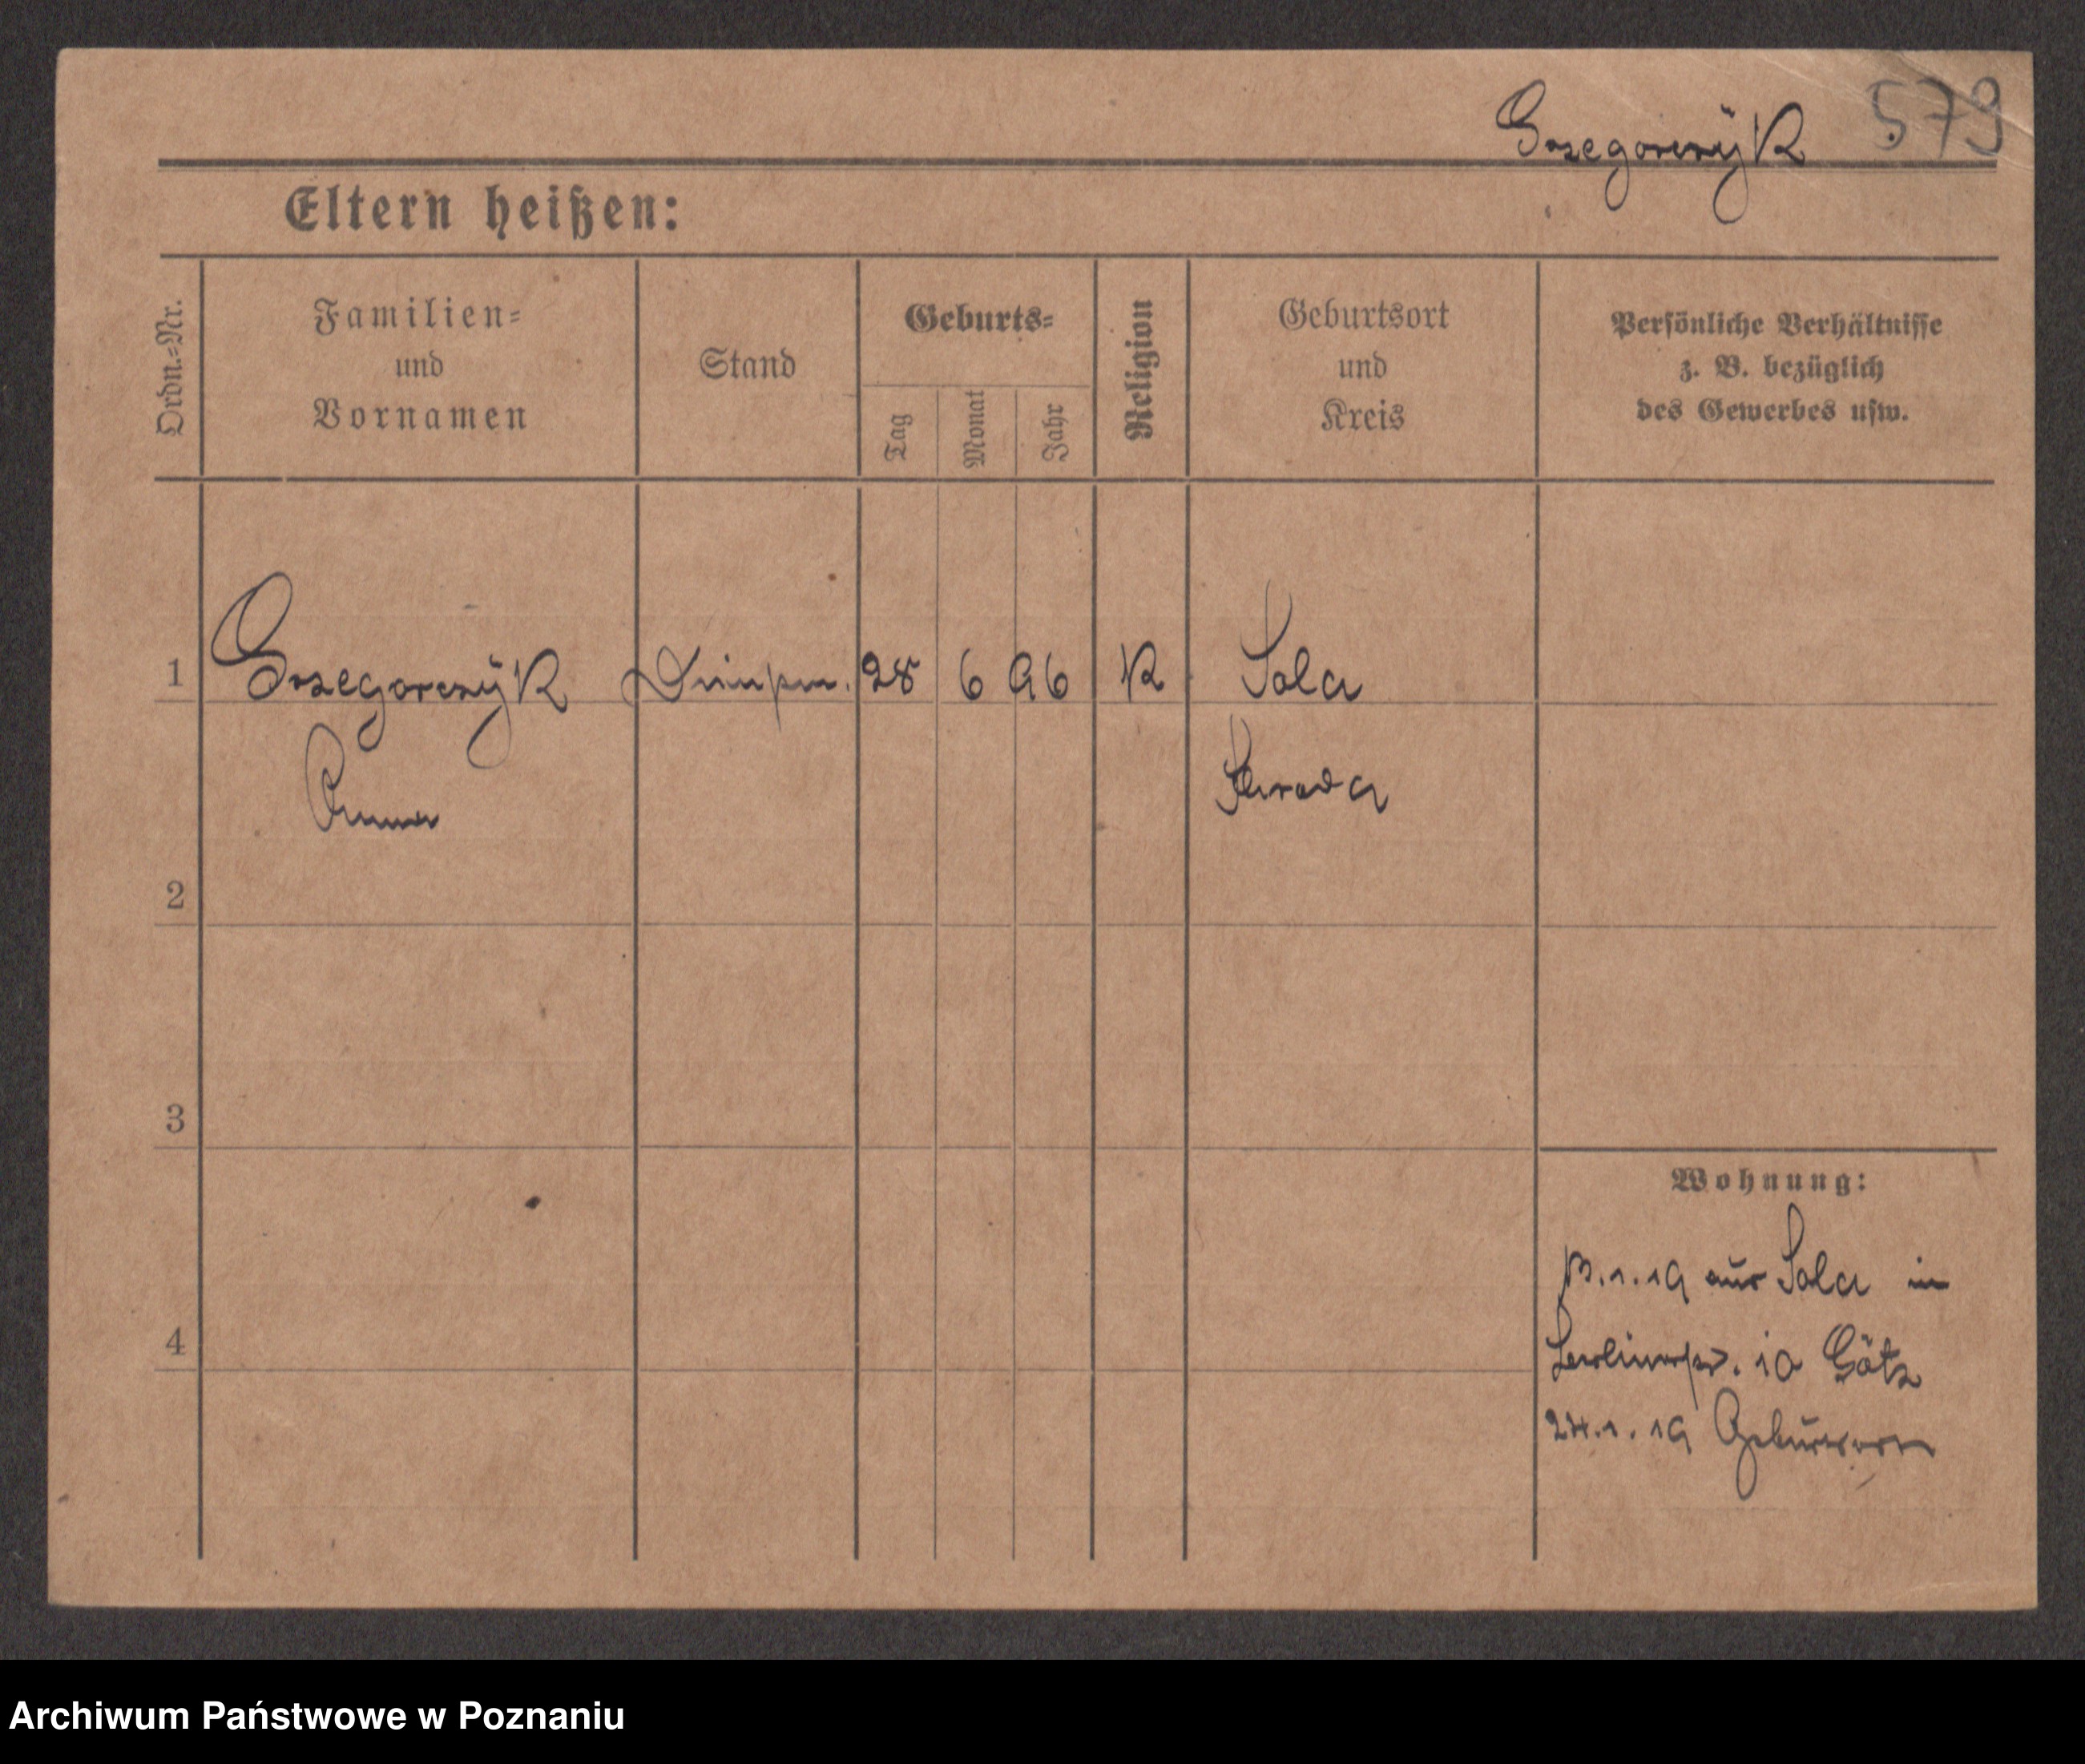 Grzegorczyk 579
Eltern heißen:
Ordn.-Nr.
Familien-
und
Vornamen
Stand
Geburts-
Tag
Monat
Jahr
Religion
Geburtsort
und
Kreis
Persönliche Verhältnisse
z. B. bezüglich
des Gewerbes usw.
1 Grzegorczyk 28 6 96 K Sola
Anna
2
3
Wohnung:
13.1.19 aus Sola in
4
10 Götz
24.1.19
Archiwum Państwowe w Poznaniu